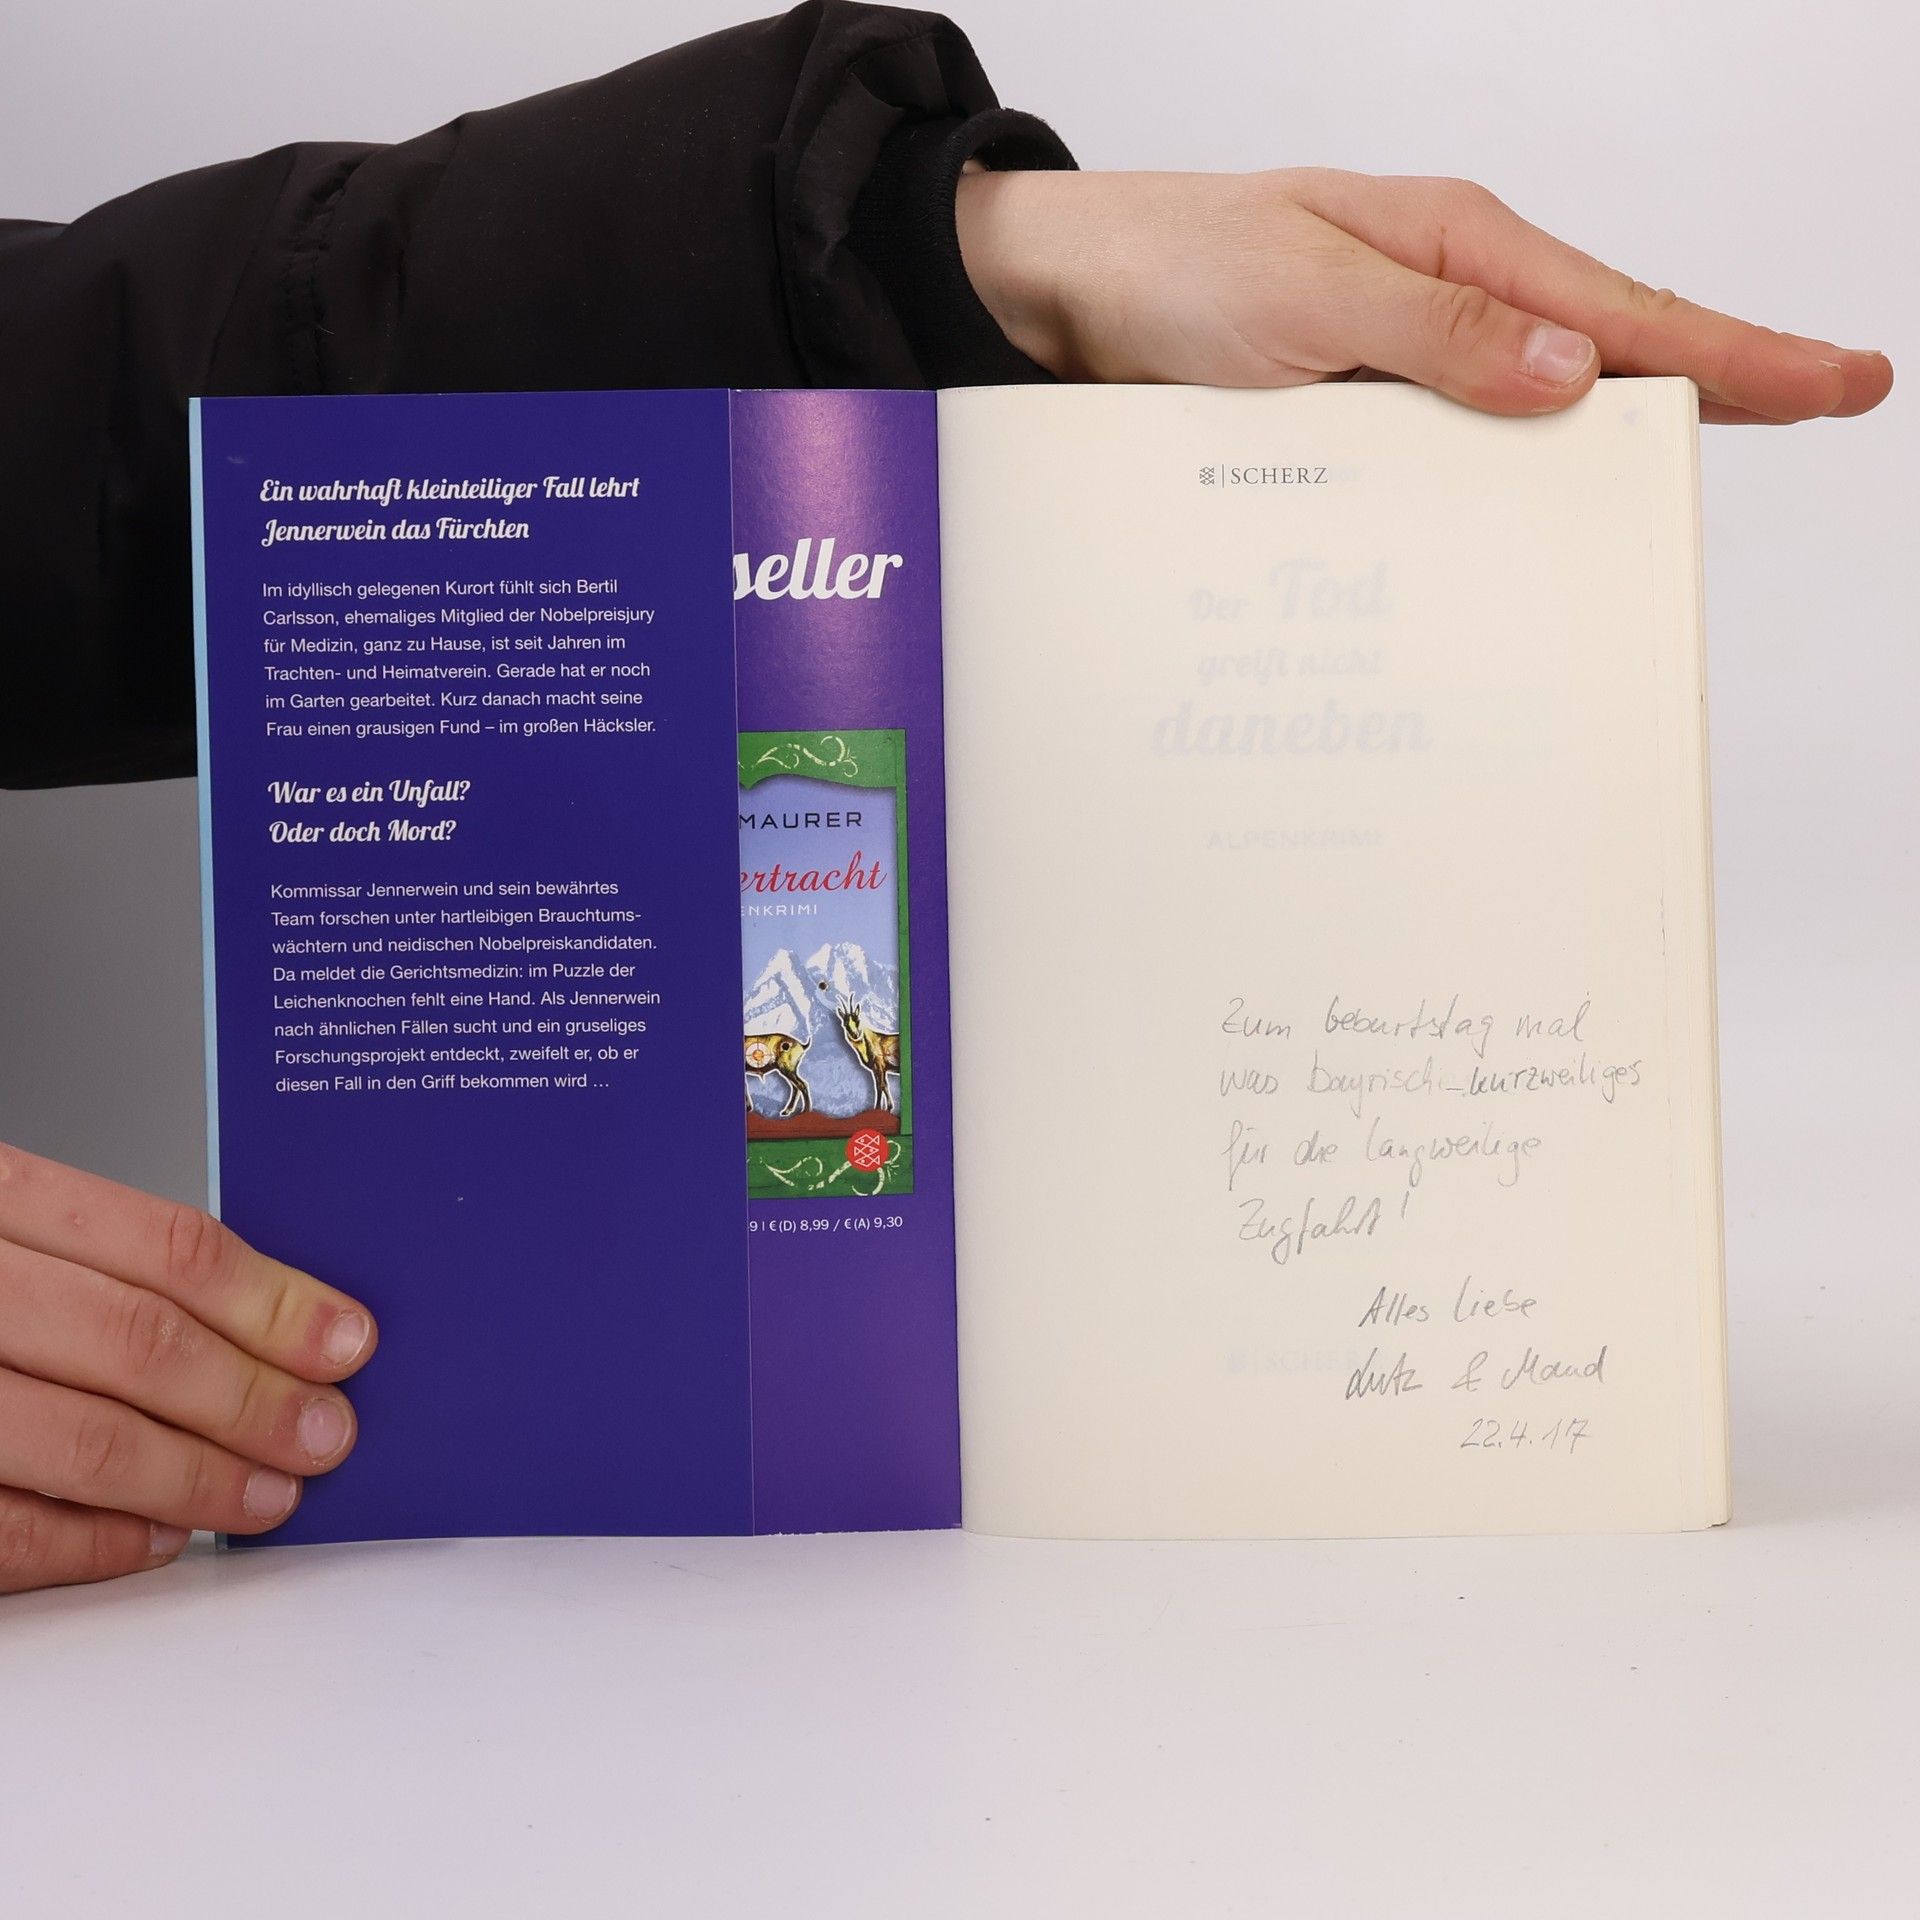 Ein wahrhaft kleinteiliger Fall lehrt
Jennerwein das Fürchten
Im idyllisch gelegenen Kurort fühlt sich Bertil
Carlsson, ehemaliges Mitglied der Nobelpreisjury
für Medizin, ganz zu Hause, ist seit Jahren im
Trachten- und Heimatverein. Gerade hat er noch
im Garten gearbeitet. Kurz danach macht seine
Frau einen grausigen Fund – im großen Häcksler.
War es ein Unfall?
Oder doch Mord?
Kommissar Jennerwein und sein bewährtes
Team forschen unter hartleibigen Brauchtums-
wächtern und neidischen Nobelpreiskandidaten.
Da meldet die Gerichtsmedizin: im Puzzle der
Leichenknochen fehlt eine Hand. Als Jennerwein
nach ähnlichen Fällen sucht und ein gruseliges
Forschungsprojekt entdeckt, zweifelt er, ob er
diesen Fall in den Griff bekommen wird ...
seller
MAURER
ertracht
ENKRIMI
9 | € (D) 8,99 / € (A) 9,30
SCHERZ
Der Tod
greift nicht
daneben
ALPENKRIMI
Zum Geburtstag mal
was bayrisch-kurzweiliges
für die langweilige
Zugfahrt!
Alles Liebe
Lutz & Maud
22.4.17
SCHERZ